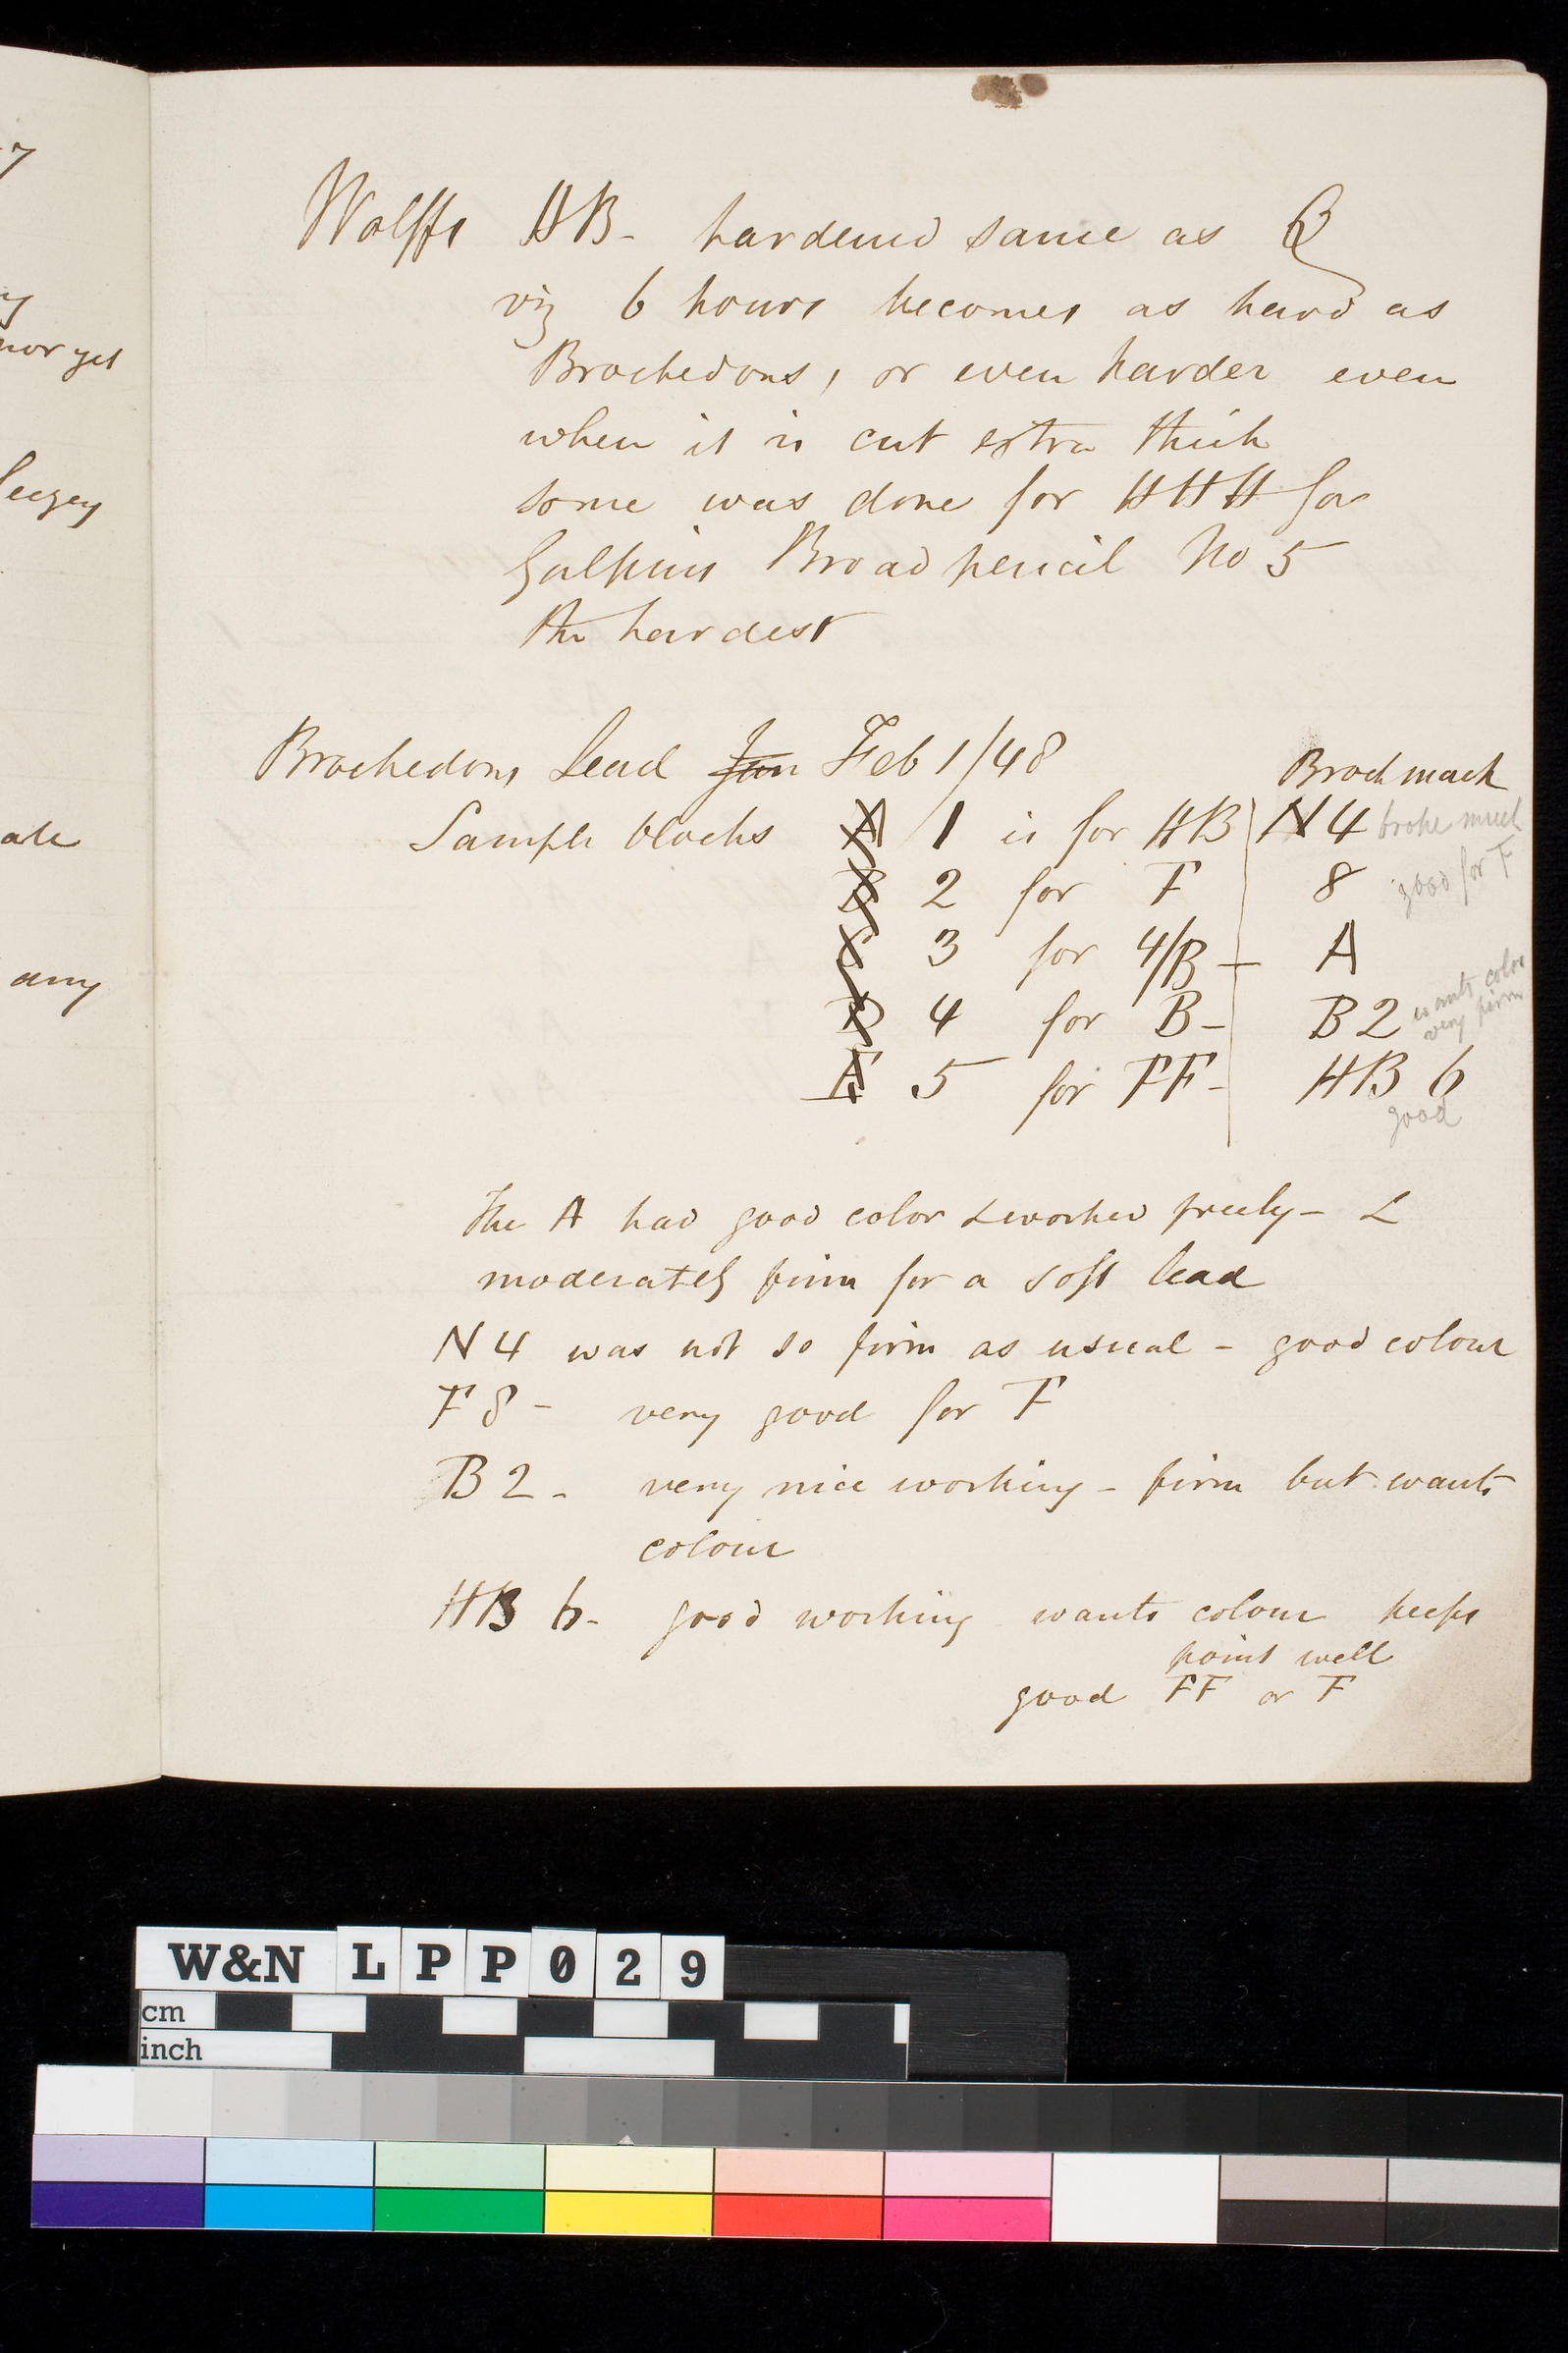 7
y
nor yet
leezey
ate
any
Wolffs HB - hardened same as B
viz 6 hours becomes as hard as
Brockedons, or even harder even
when it is cut extra thick
some was done for HHH for
Galpins Broad pencil No 5
the hardest
Brockedons Lead Jan Feb 1/48
Brock mark
Sample blocks A 1 is for HB N4 broke much
B 2 for F 8 good for F
C 3 for 4/B - A
D 4 for B - B2 wants color
very firm
E 5 for FF - HB 6
good
The A had good color & worked freely - &
moderately firm for a soft lead
N4 was not so firm as usual - good colour
F 8 - very good for F
B 2 - very nice working - firm but wants
colour
HB 6 - good working wants colour keeps
point well
good FF or F
W&N LPP029
cm
inch